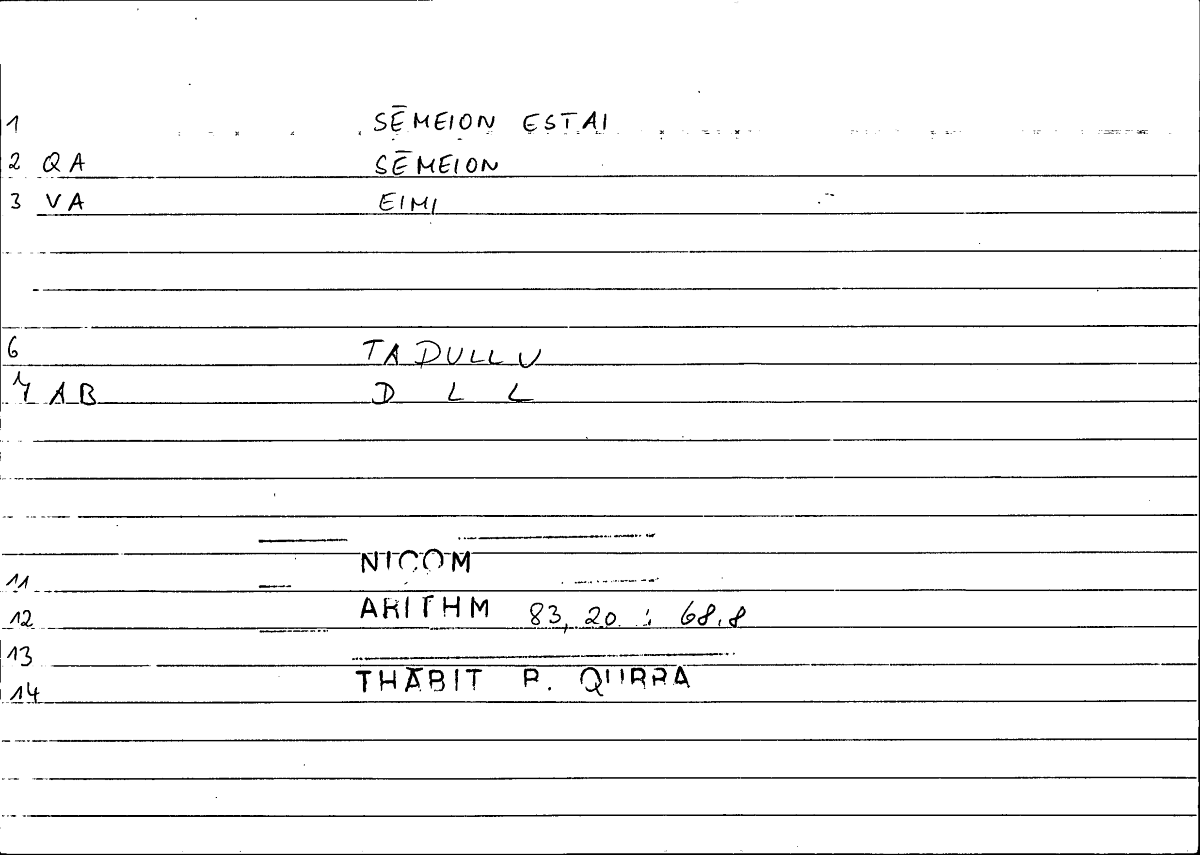 1 SĒMEION ESTAI
2 QA SĒMEION
3 VA EIMI
6 TADULLU
7 AB D L L
NICOM
11
12 ARITHM 83,20 : 68.8
13
14 THĀBIT B. QURRA